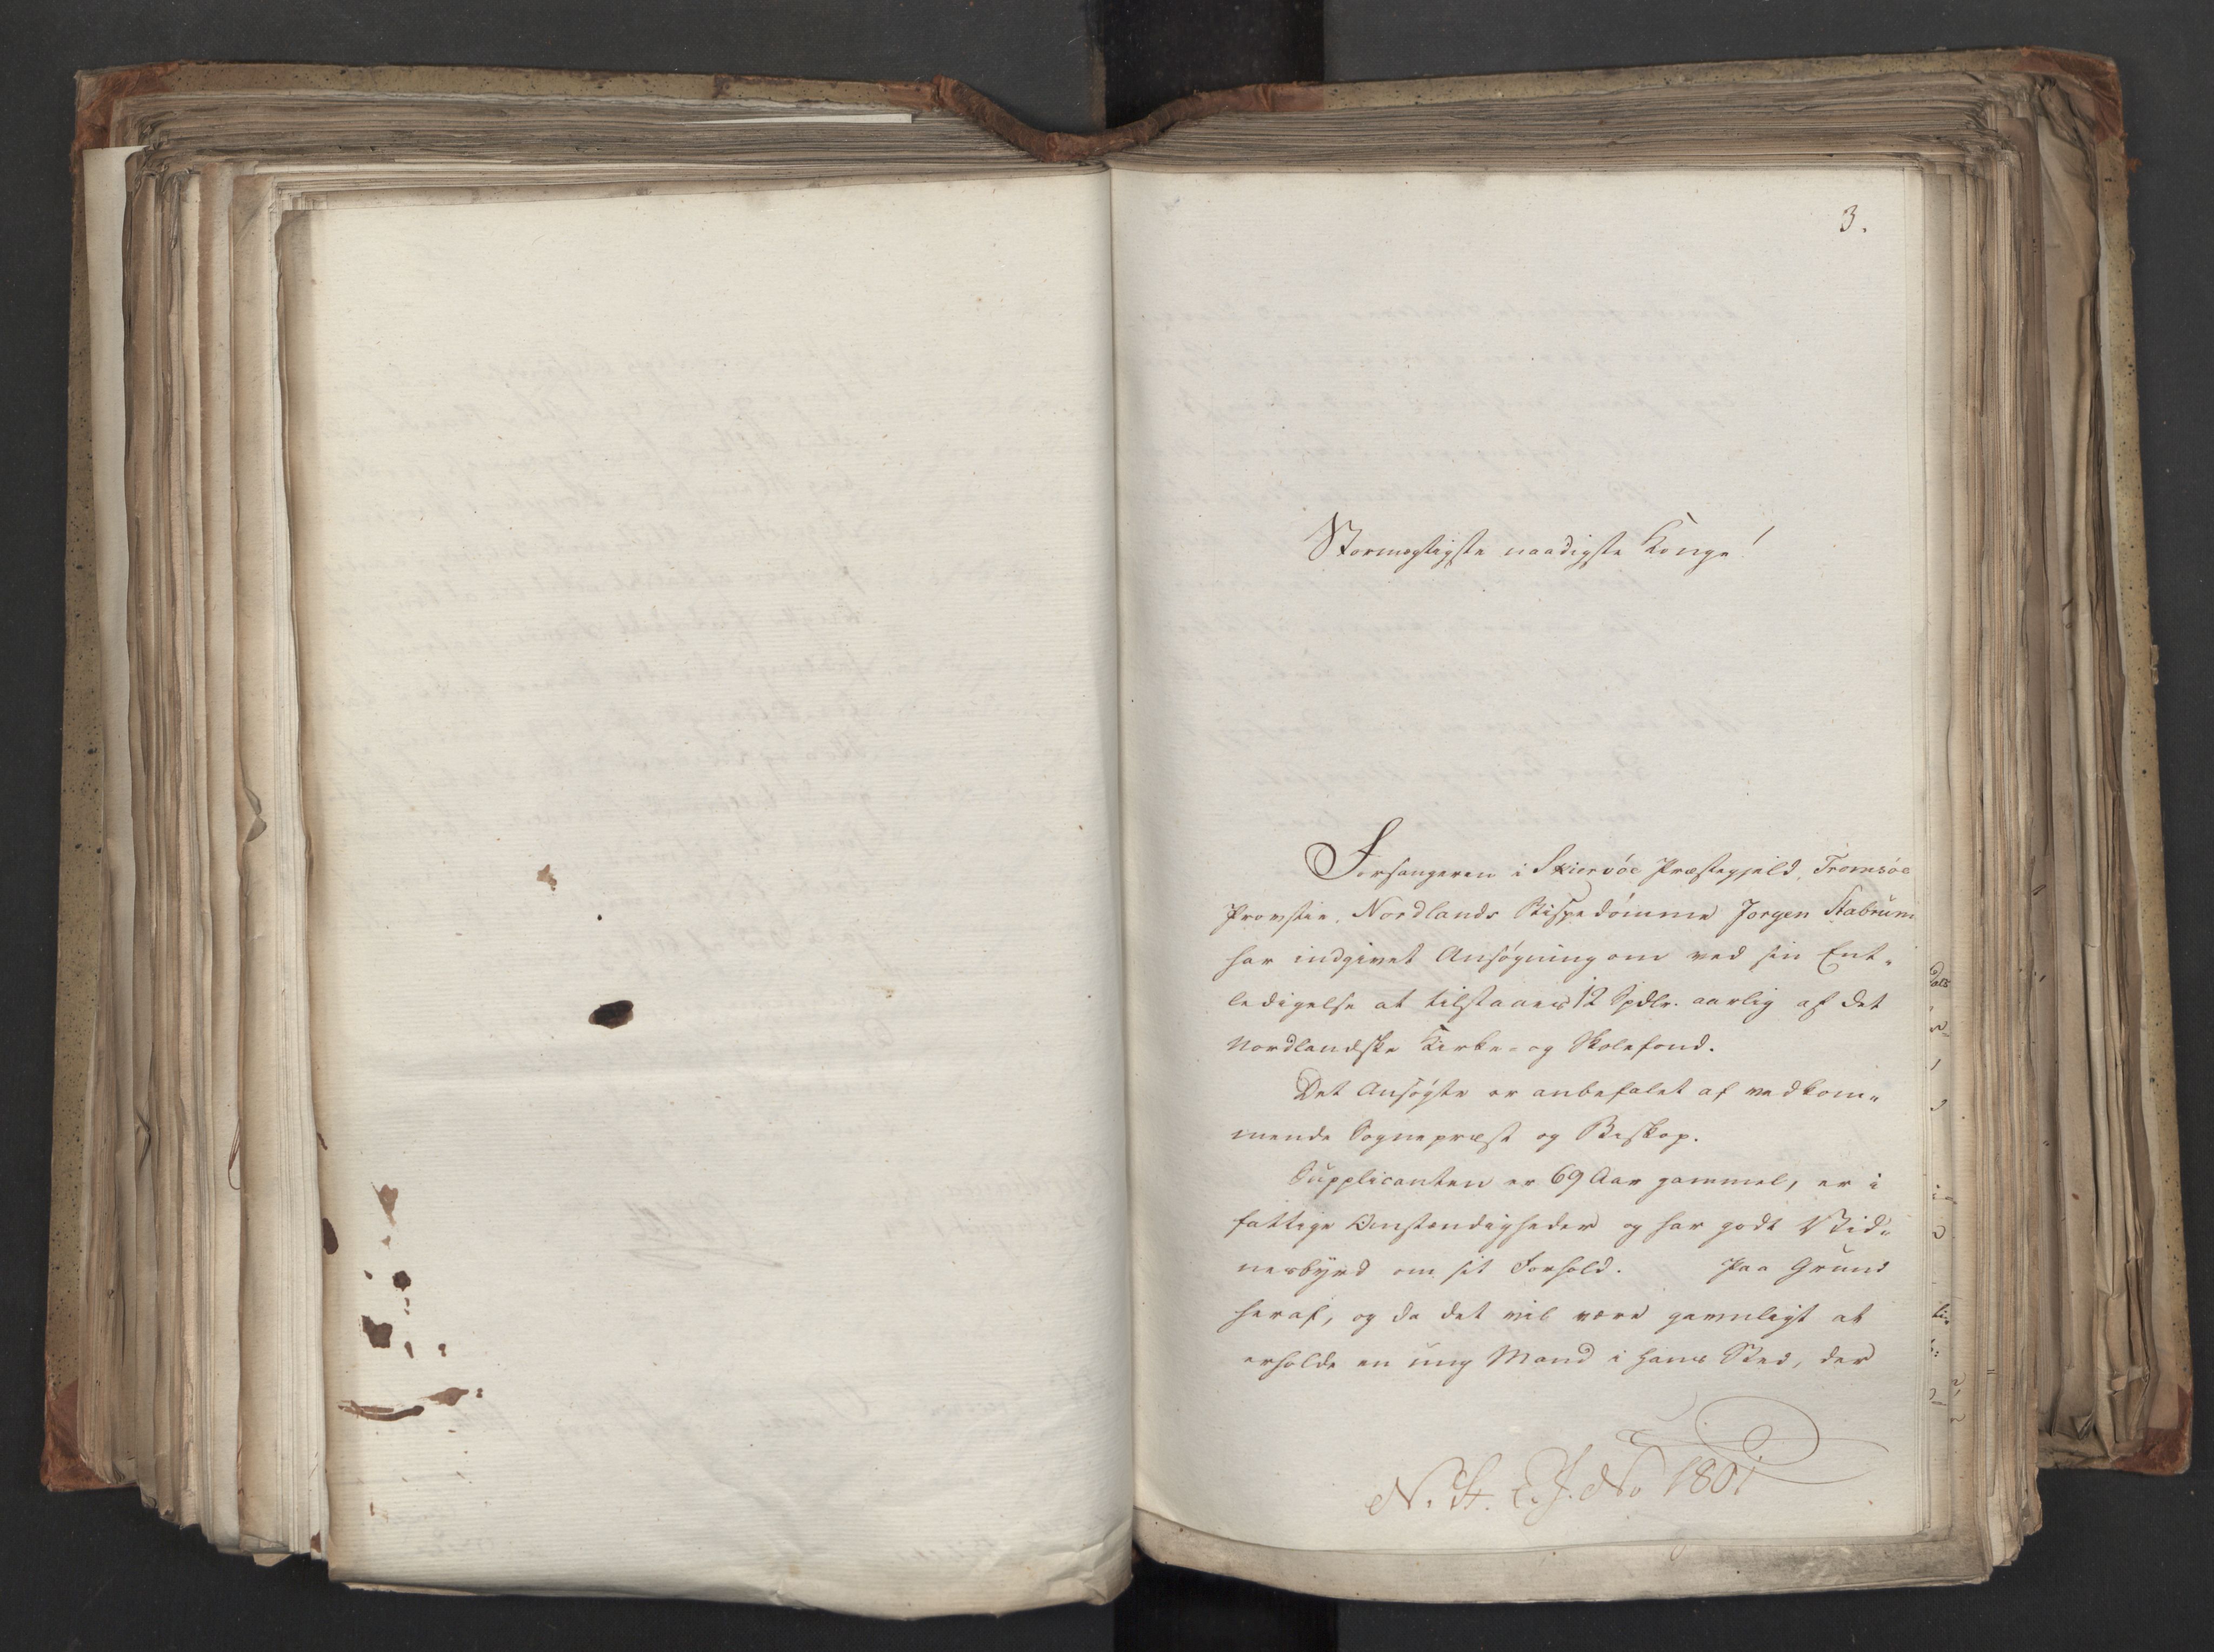 3.
Stormægtigste naadigste Konge!
Forsangeren i Skiervöe Præstegjeld, Tromsöe
Provstie, Nordlands Bispedömme Jorgen Stabrum
har indgivet Ansögning om ved sin Ent-
ledigelse at tilstaaes 12 Spdlr. aarlig af det
Nordlandske Kirke- og Skolefond.
Det Ansögte er anbefalet af vedkom-
mende Sognepræst og Biskop.
Supplicanten er 69 Aar gammel, er i
fattige Omstændigheder og har godt Vid-
nesbyrd om sit Forhold. Paa Grund
heraf, og da det vil være gavnligt at
erholde en ung Mand i hans Sted, der
N. St. E. J. No 1801